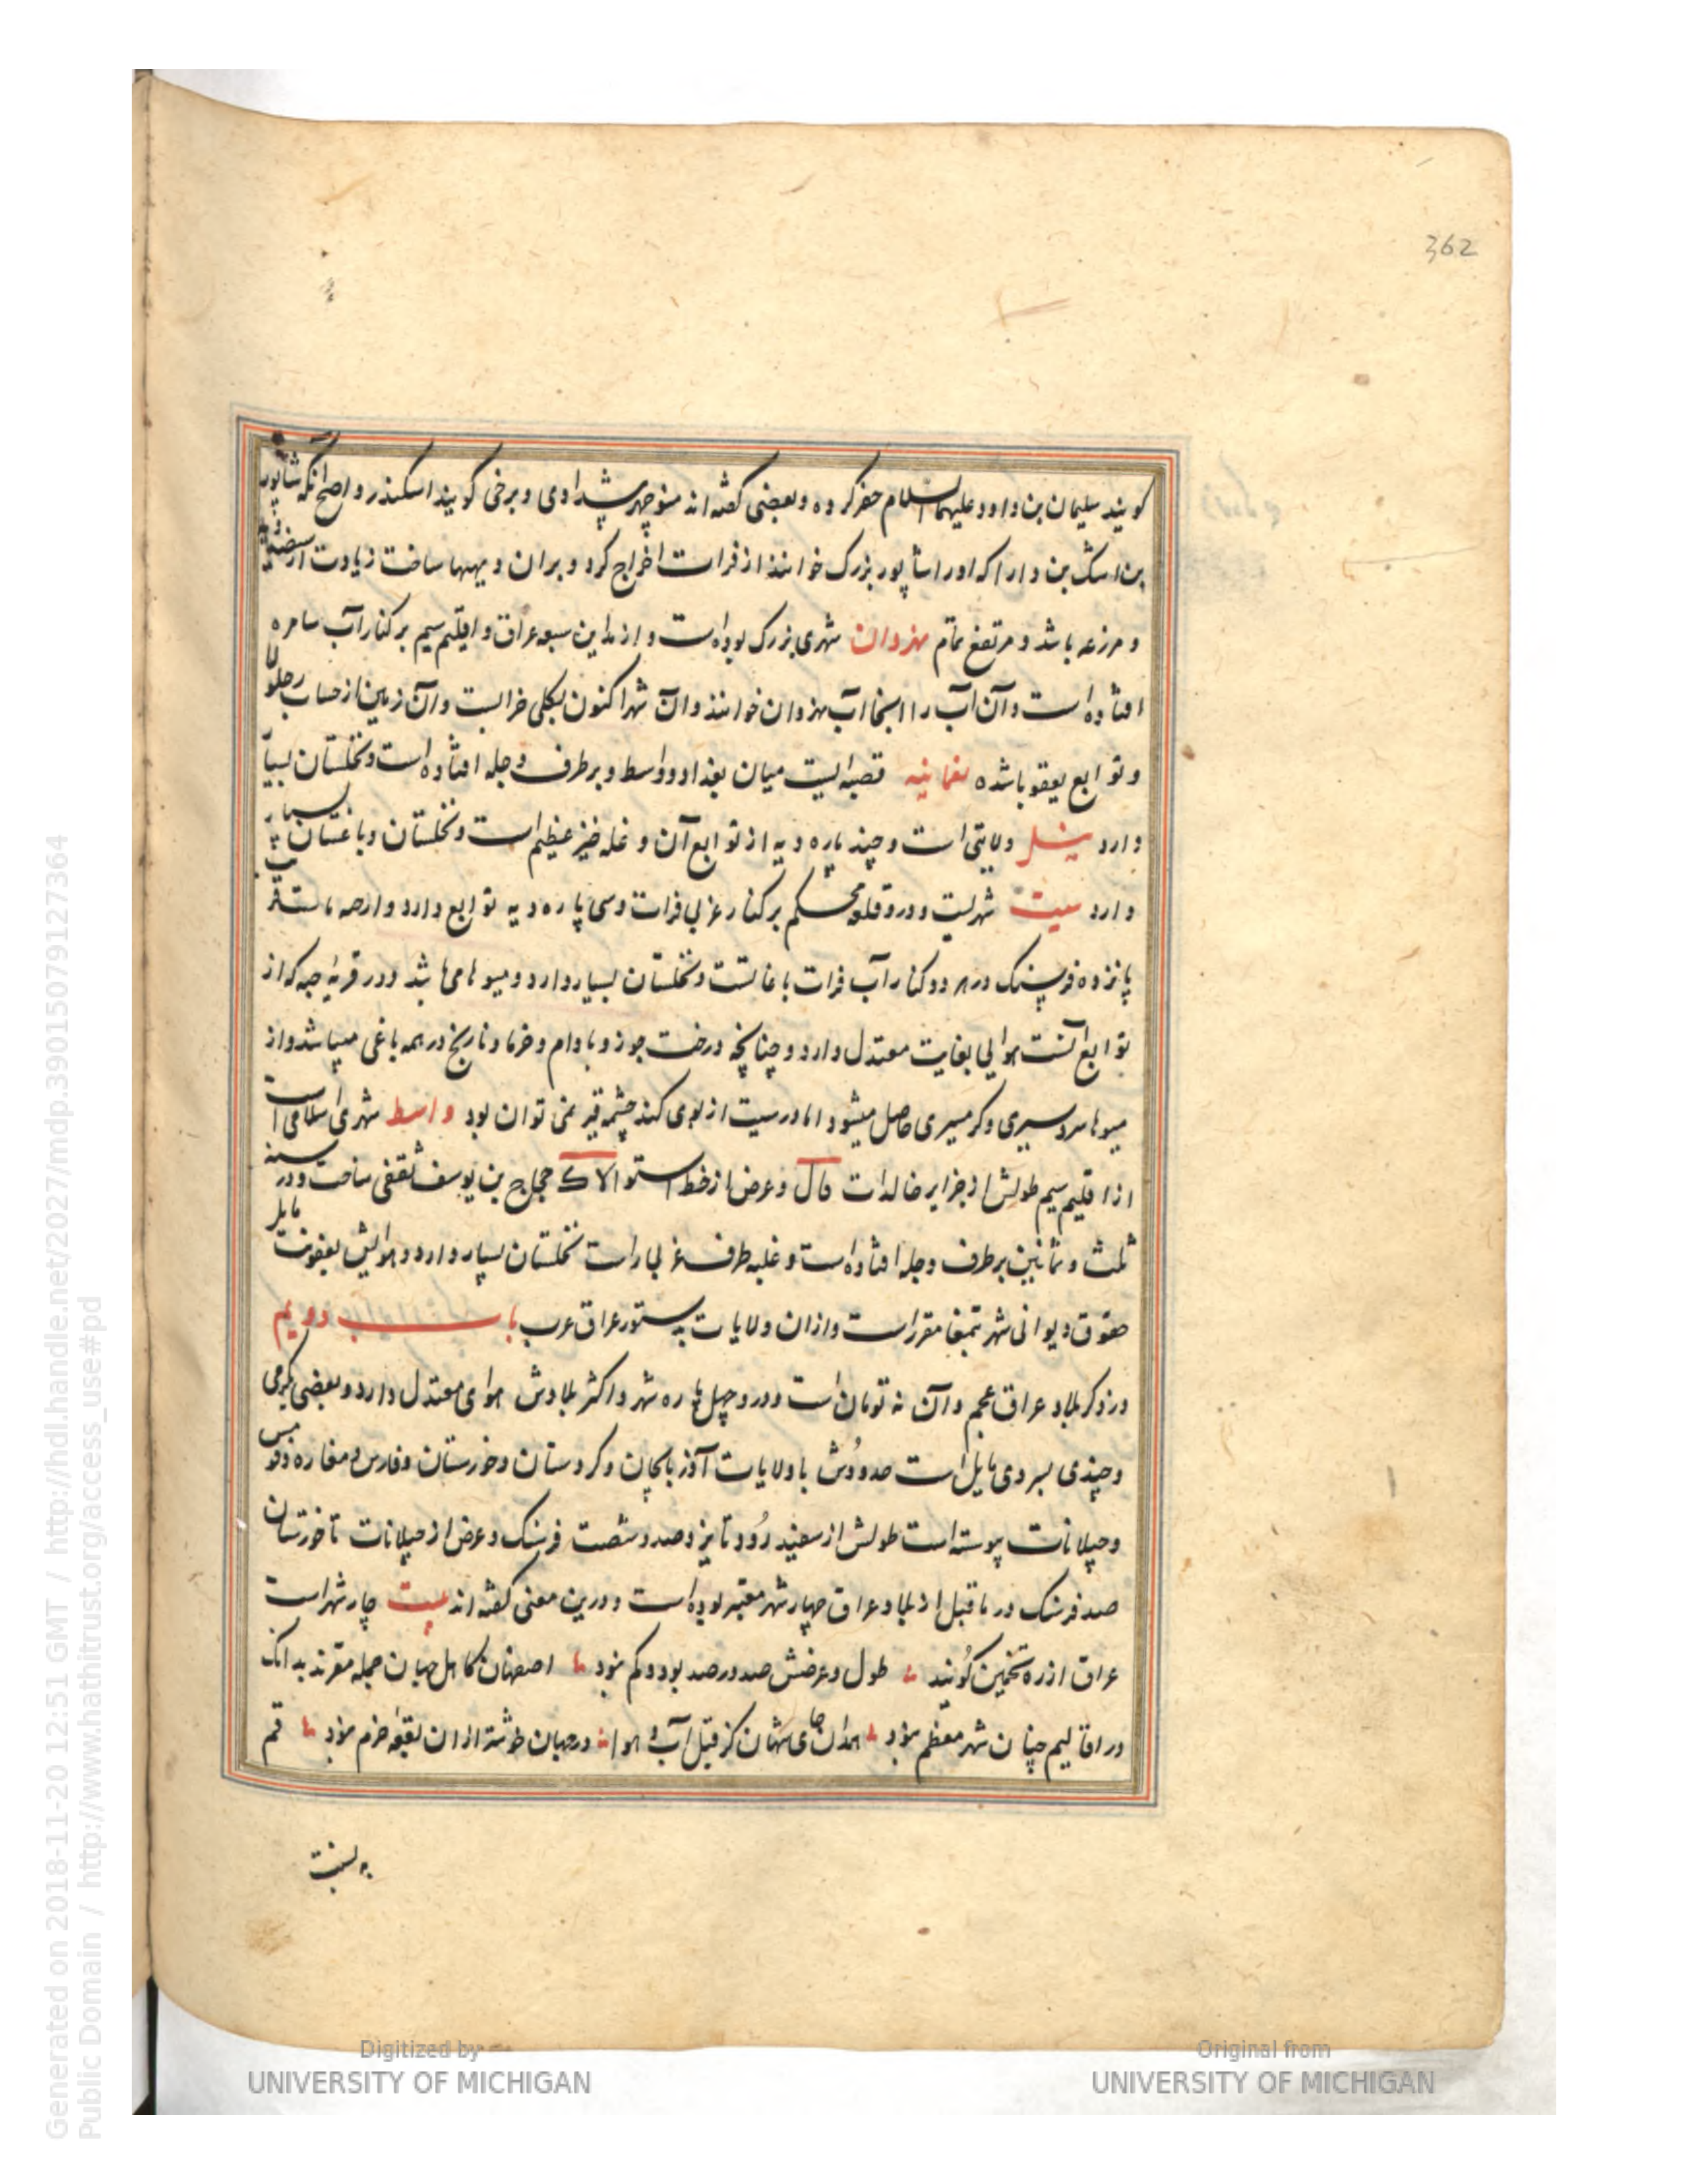 362
کویند سلیمان بن داود علیهما السلام حفر کرده و بعضی کفته اند منوچهر پیشدادی و برخی کویند اسکندر و اصح آنکه شاپور
بن اشک بن دارا که او را شاپور بزرک خوانند از فرات اخراج کرد و بران دیهها ساخت زیادت از سیصد دیه
و مزرعه باشد و مرتفع تمام نهروان شهری بزرک بوده است و از مداین سبعه عراق و اقلیم سیم بر کنار آب سامره
افتاده است و آن آب را اینجا آب نهروان خوانند و آن شهر اکنون بکلی خرابست و آن زمین از حساب جلولا
و توابع یعقوبا شده نعمانیه قصبه ایست میان بغداد و واسط و بر طرف دجله افتاده است و نخلستان بسیار
دارد نیل ولایتی است و چند پاره دیه از توابع آن و غله خیز عظیم است و نخلستان و باغستان بسیار
دارد هیت شهریست و درو قلعه محکم بر کنار غربی فرات و سی پاره دیه توابع دارد و از
پانزده فرسنک در هر دو کنار آب فرات باغاتست و نخلستان بسیار دارد و میوها می باشد و در قریه جبه که از
توابع آنست هوایی بغایت معتدل دارد و چنانچه درخت جوز و بادام و خرما و نارنج در همه باغی میباشد و از
میوها سردسیری و کرمسیری حاصل میشود اما در هیت از بوی کند چشمه قیر نمی توان بود واسط شهری اسلامی است
از اقلیم سیم طولش از جزایر خالدات فال و عرض از خط استوا لاک حجاج بن یوسف ثقفی ساخت و در سنه
ثلث و ثمانین بر طرف دجله افتاده است و غلبه طرف غربی راست نخلستان بسیار دارد و هوایش بعفونت مایل
حقوق دیوانی شهر بتمغا مقرر است و از ان ولایات بدستور عراق عرب باب دویم
در ذکر بلاد عراق عجم و آن نه تومان است و درو چهل پاره شهر و اکثر بلادش هوای معتدل دارد و بعضی بکرمی
و چندی بسردی مایل است حدودش با ولایات آذربایجان و کردستان و خوزستان و فارس و مفازه و قومس
و جیلانات پیوسته است طولش از سفید رود تا یزد صد و شصت فرسنک و عرض از جیلانات تا خوزستان
صد فرسنک در ما قبل از بلاد عراق چهار شهر معتبر بوده است و درین معنی کفته اند بیت چار شهر است
عراق از ره تخمین کویند طول و عرضش صد در صد بود و کم نبود اصفهان کاهل جهان جمله مقرند بدانک
در اقالیم چنان شهر معظم نبود همدان جای شهان کز قبل آب و هوا در جهان خوشتر از ان بقعه خرم نبود قم
به نسبت
Generated on 2018-11-20 12:51 GMT / http://hdl.handle.net/2027/mdp.39015079127364
Public Domain / http://www.hathitrust.org/access_use#pd
Digitized by
UNIVERSITY OF MICHIGAN
Original from
UNIVERSITY OF MICHIGAN